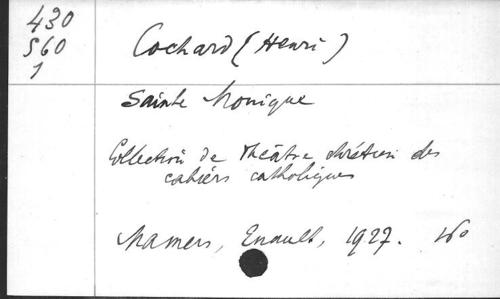 430
560
1
Cochard (Henri)
Sainte Monique
Collection de Théâtre chrétien des
cahiers catholiques
Mamers, Enault, 1927. 16º